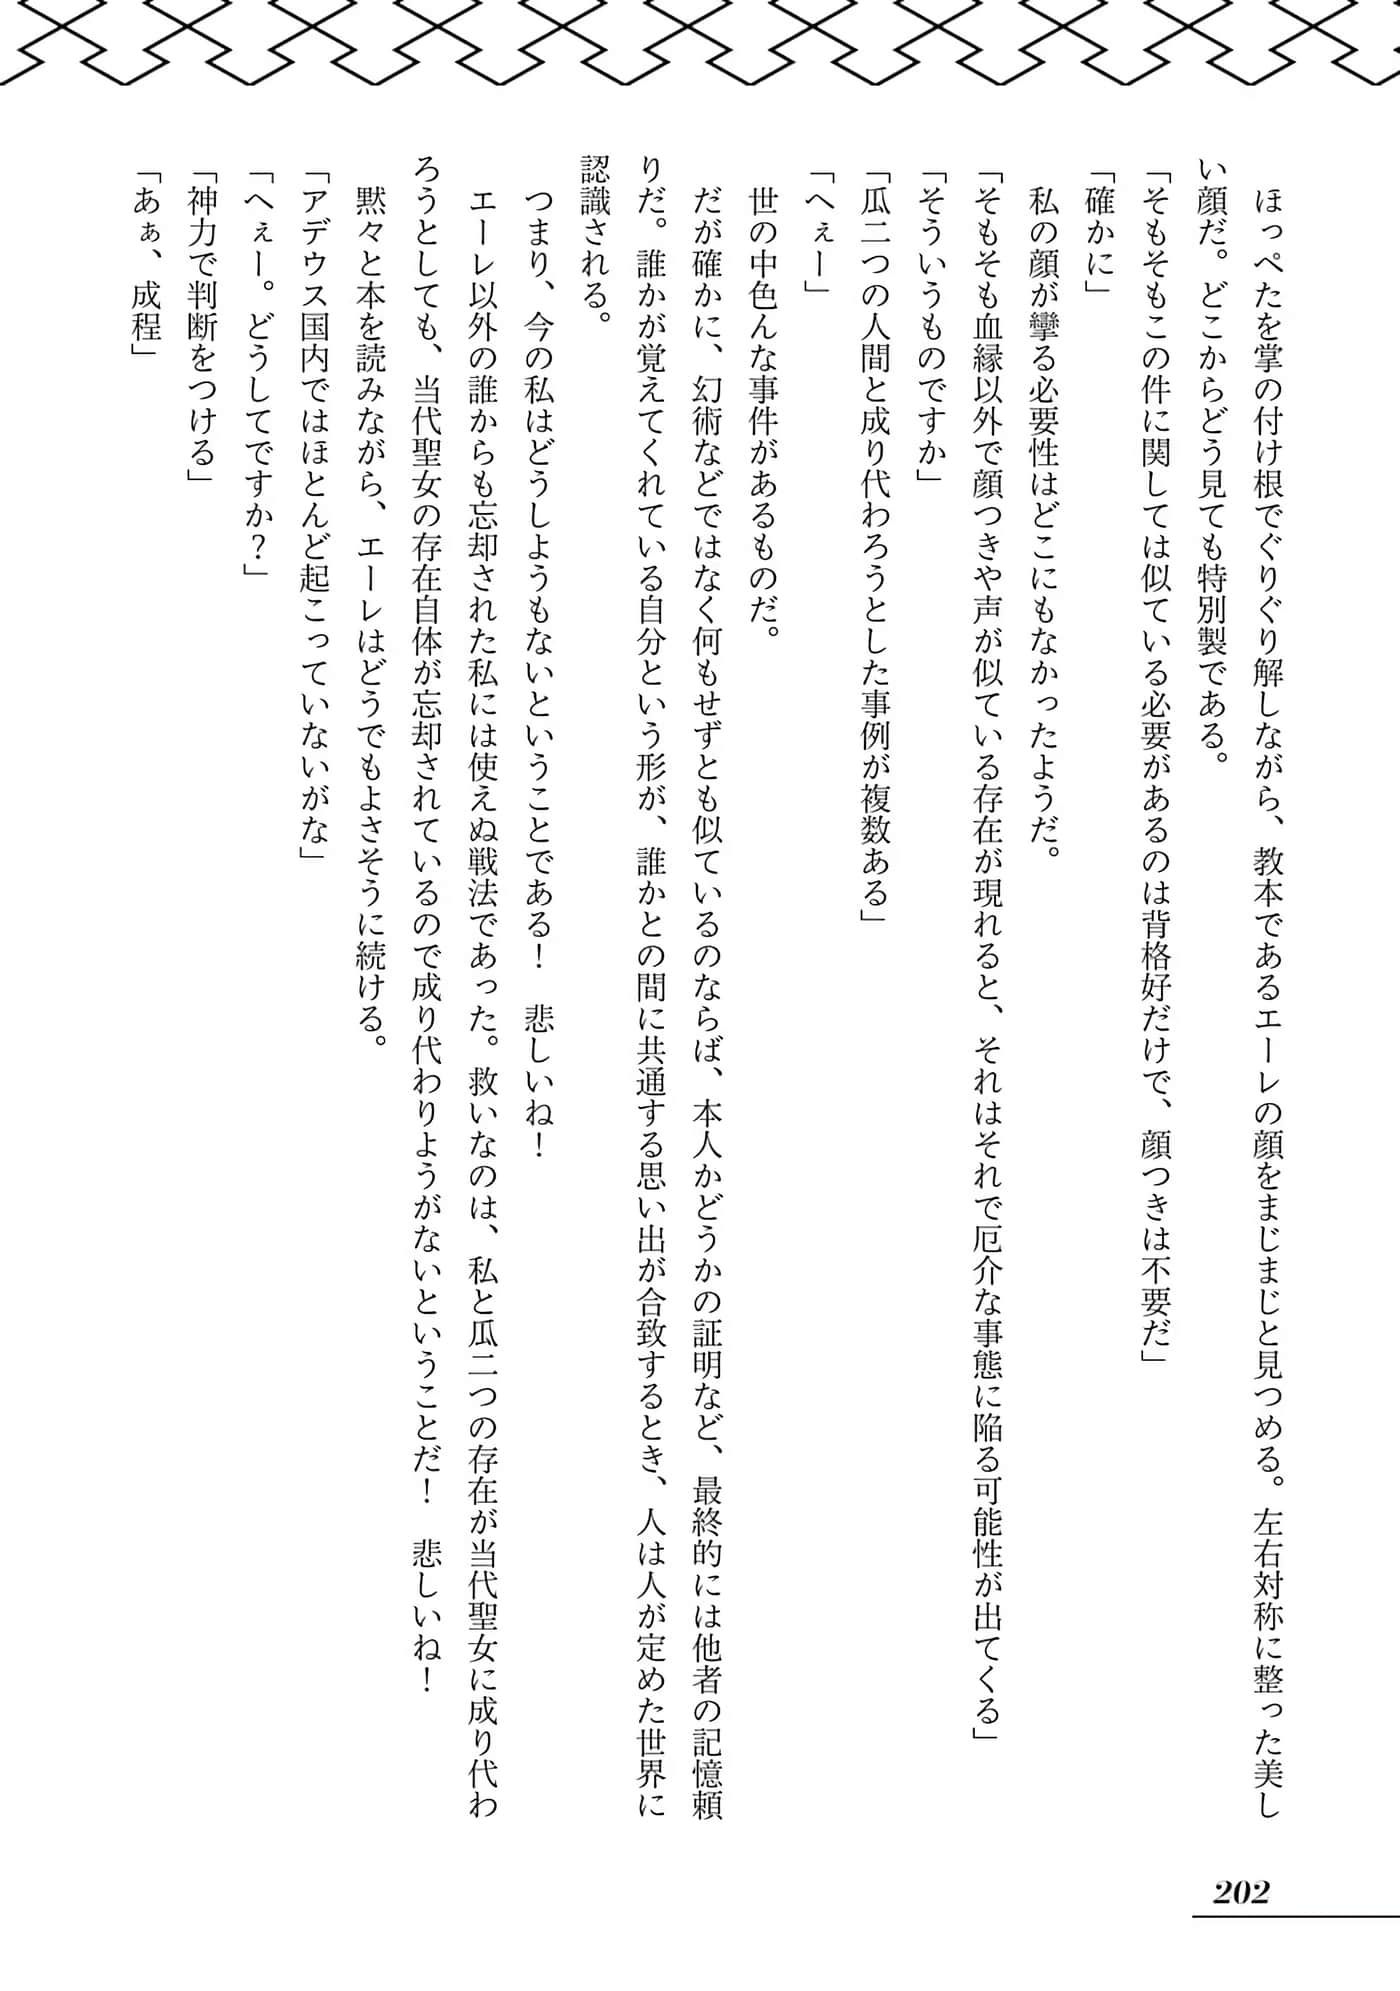 ほっぺたを掌の付け根でぐりぐり解しながら、教本であるエーレの顔をまじまじと見つめる。左右対称に整った美し
い顔だ。どこからどう見ても特別製である。
「そもそもこの件に関しては似ている必要があるのは背格好だけで、顔つきは不要だ」
「確かに」
　私の顔が攣る必要性はどこにもなかったようだ。
「そもそも血縁以外で顔つきや声が似ている存在が現れると、それはそれで厄介な事態に陥る可能性が出てくる」
「そういうものですか」
「瓜二つの人間と成り代わろうとした事例が複数ある」
「へぇー」
　世の中色んな事件があるものだ。
　だが確かに、幻術などではなく何もせずとも似ているのならば、本人かどうかの証明など、最終的には他者の記憶頼
りだ。誰かが覚えてくれている自分という形が、誰かとの間に共通する思い出が合致するとき、人は人が定めた世界に
認識される。
　つまり、今の私はどうしようもないということである！　悲しいね！
　エーレ以外の誰からも忘却された私には使えぬ戦法であった。救いなのは、私と瓜二つの存在が当代聖女に成り代わ
ろうとしても、当代聖女の存在自体が忘却されているので成り代わりようがないということだ！　悲しいね！
　黙々と本を読みながら、エーレはどうでもよさそうに続ける。
「アデウス国内ではほとんど起こっていないがな」
「へぇー。どうしてですか？」
「神力で判断をつける」
「あぁ、成程」
202